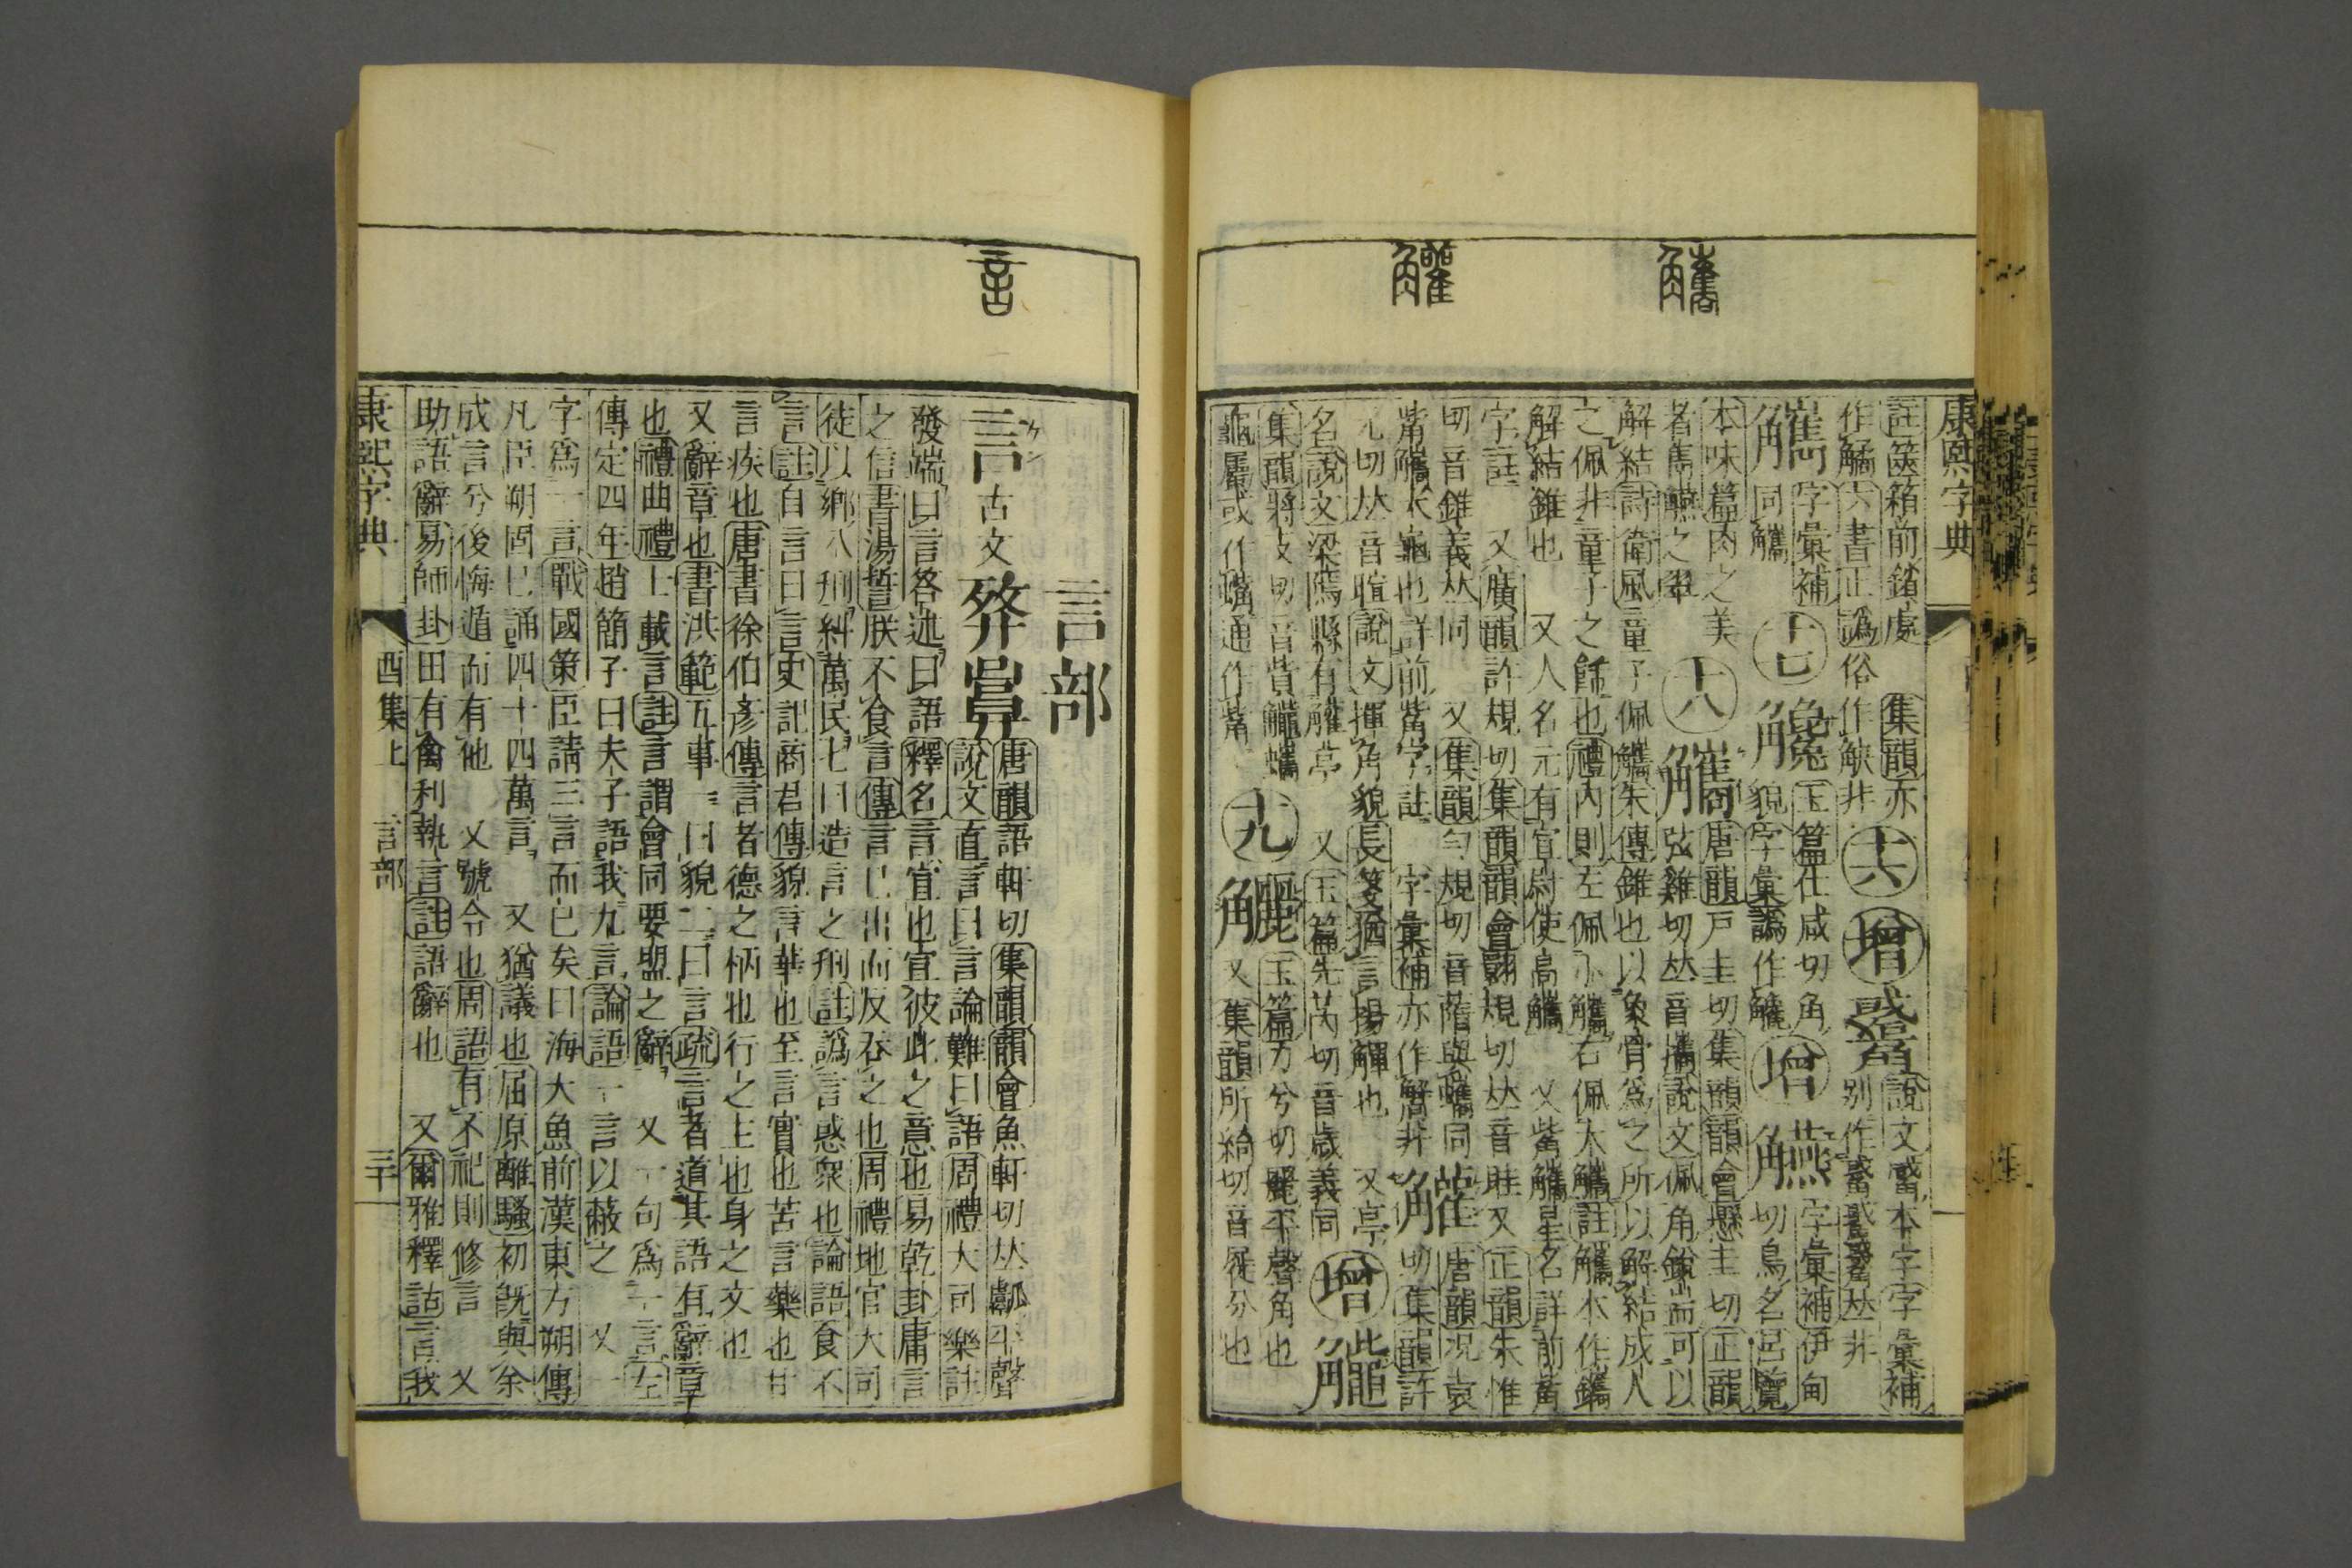 康熙字典
註篋箱前鎖處 集韻亦
作觿六書正譌俗作觖非
十六
增
說文𧤼本字字彙補
觹
字彙補
同觿
十七
玉篇仕咸切角
貌字彙譌作
增
觾
字彙補伊甸
切鳥名呂覽
本味篇肉之美
者雋觾之翠
十八
觿
唐韻戸圭切集韻韻會懸圭切正韻
弦雞切𠀤音攜說文佩角銳耑可以
解結詩衛風童子佩觿朱傳錐也以象骨爲之所以解結成人
之佩非童子之飾也禮內則左佩小觿右佩大觿註觿本作鑴
解結錐也 又人名元有宣尉使高觿 又觜觿星名詳前觜
字註 又廣韻許規切集韻韻會翾規切𠀤音眭又正韻朱惟
切音錐義𠀤同 又集韻勻規切音䔺與蠵同
觜觿大龜也詳前觜字註 字彙補亦作䲪非
觀
唐韻況袁
切集韻許
元切𠀤音暄說文揮角貌長箋猶言揚觶也 又亭
名說文梁隱縣有觀亭 又玉篇先芮切音歲義同
增
集韻將支切音貲觿蠵
龜屬或作蟕通作觜
十九
觸
玉篇力兮切麗平聲角也
又集韻所給切音屣分也
觿
觀
言
言部
言
古文
唐韻語軒切集韻韻會魚軒切𠀤𪘬平聲
說文直言曰言論難曰語周禮大司樂註
發端曰言答述曰語釋名言宣也宣彼此之意也易乾卦庸言
之信書湯誓朕不食言傳言已出而反吞之也周禮地官大司
徒以鄉八刑糾萬民七曰造言之刑註譌言惑衆也論語食不
言註自言曰言史記商君傳貌言華也至言實也苦言藥也甘
言疾也唐書徐伯彥傳言者德之柄也行之主也身之文也
又辭章也書洪範五事一曰貌二曰言疏言者道其語有辭章
也禮曲禮士載言註言謂會同要盟之辭 又一句爲一言左
傳定四年趙簡子曰夫子語我九言論語一言以蔽之 又一
字爲一言戰國策臣請三言而已矣曰海大魚前漢東方朔傳
凡臣朔固已誦四十四萬言 又猶議也屈原離騷初旣與余
成言兮後悔遁而有他 又號令也周語有不祀則修言 又
助語辭易師卦田有禽利執言註語辭也 又爾雅釋詁言我
康熙字典
酉集上 言部 三十